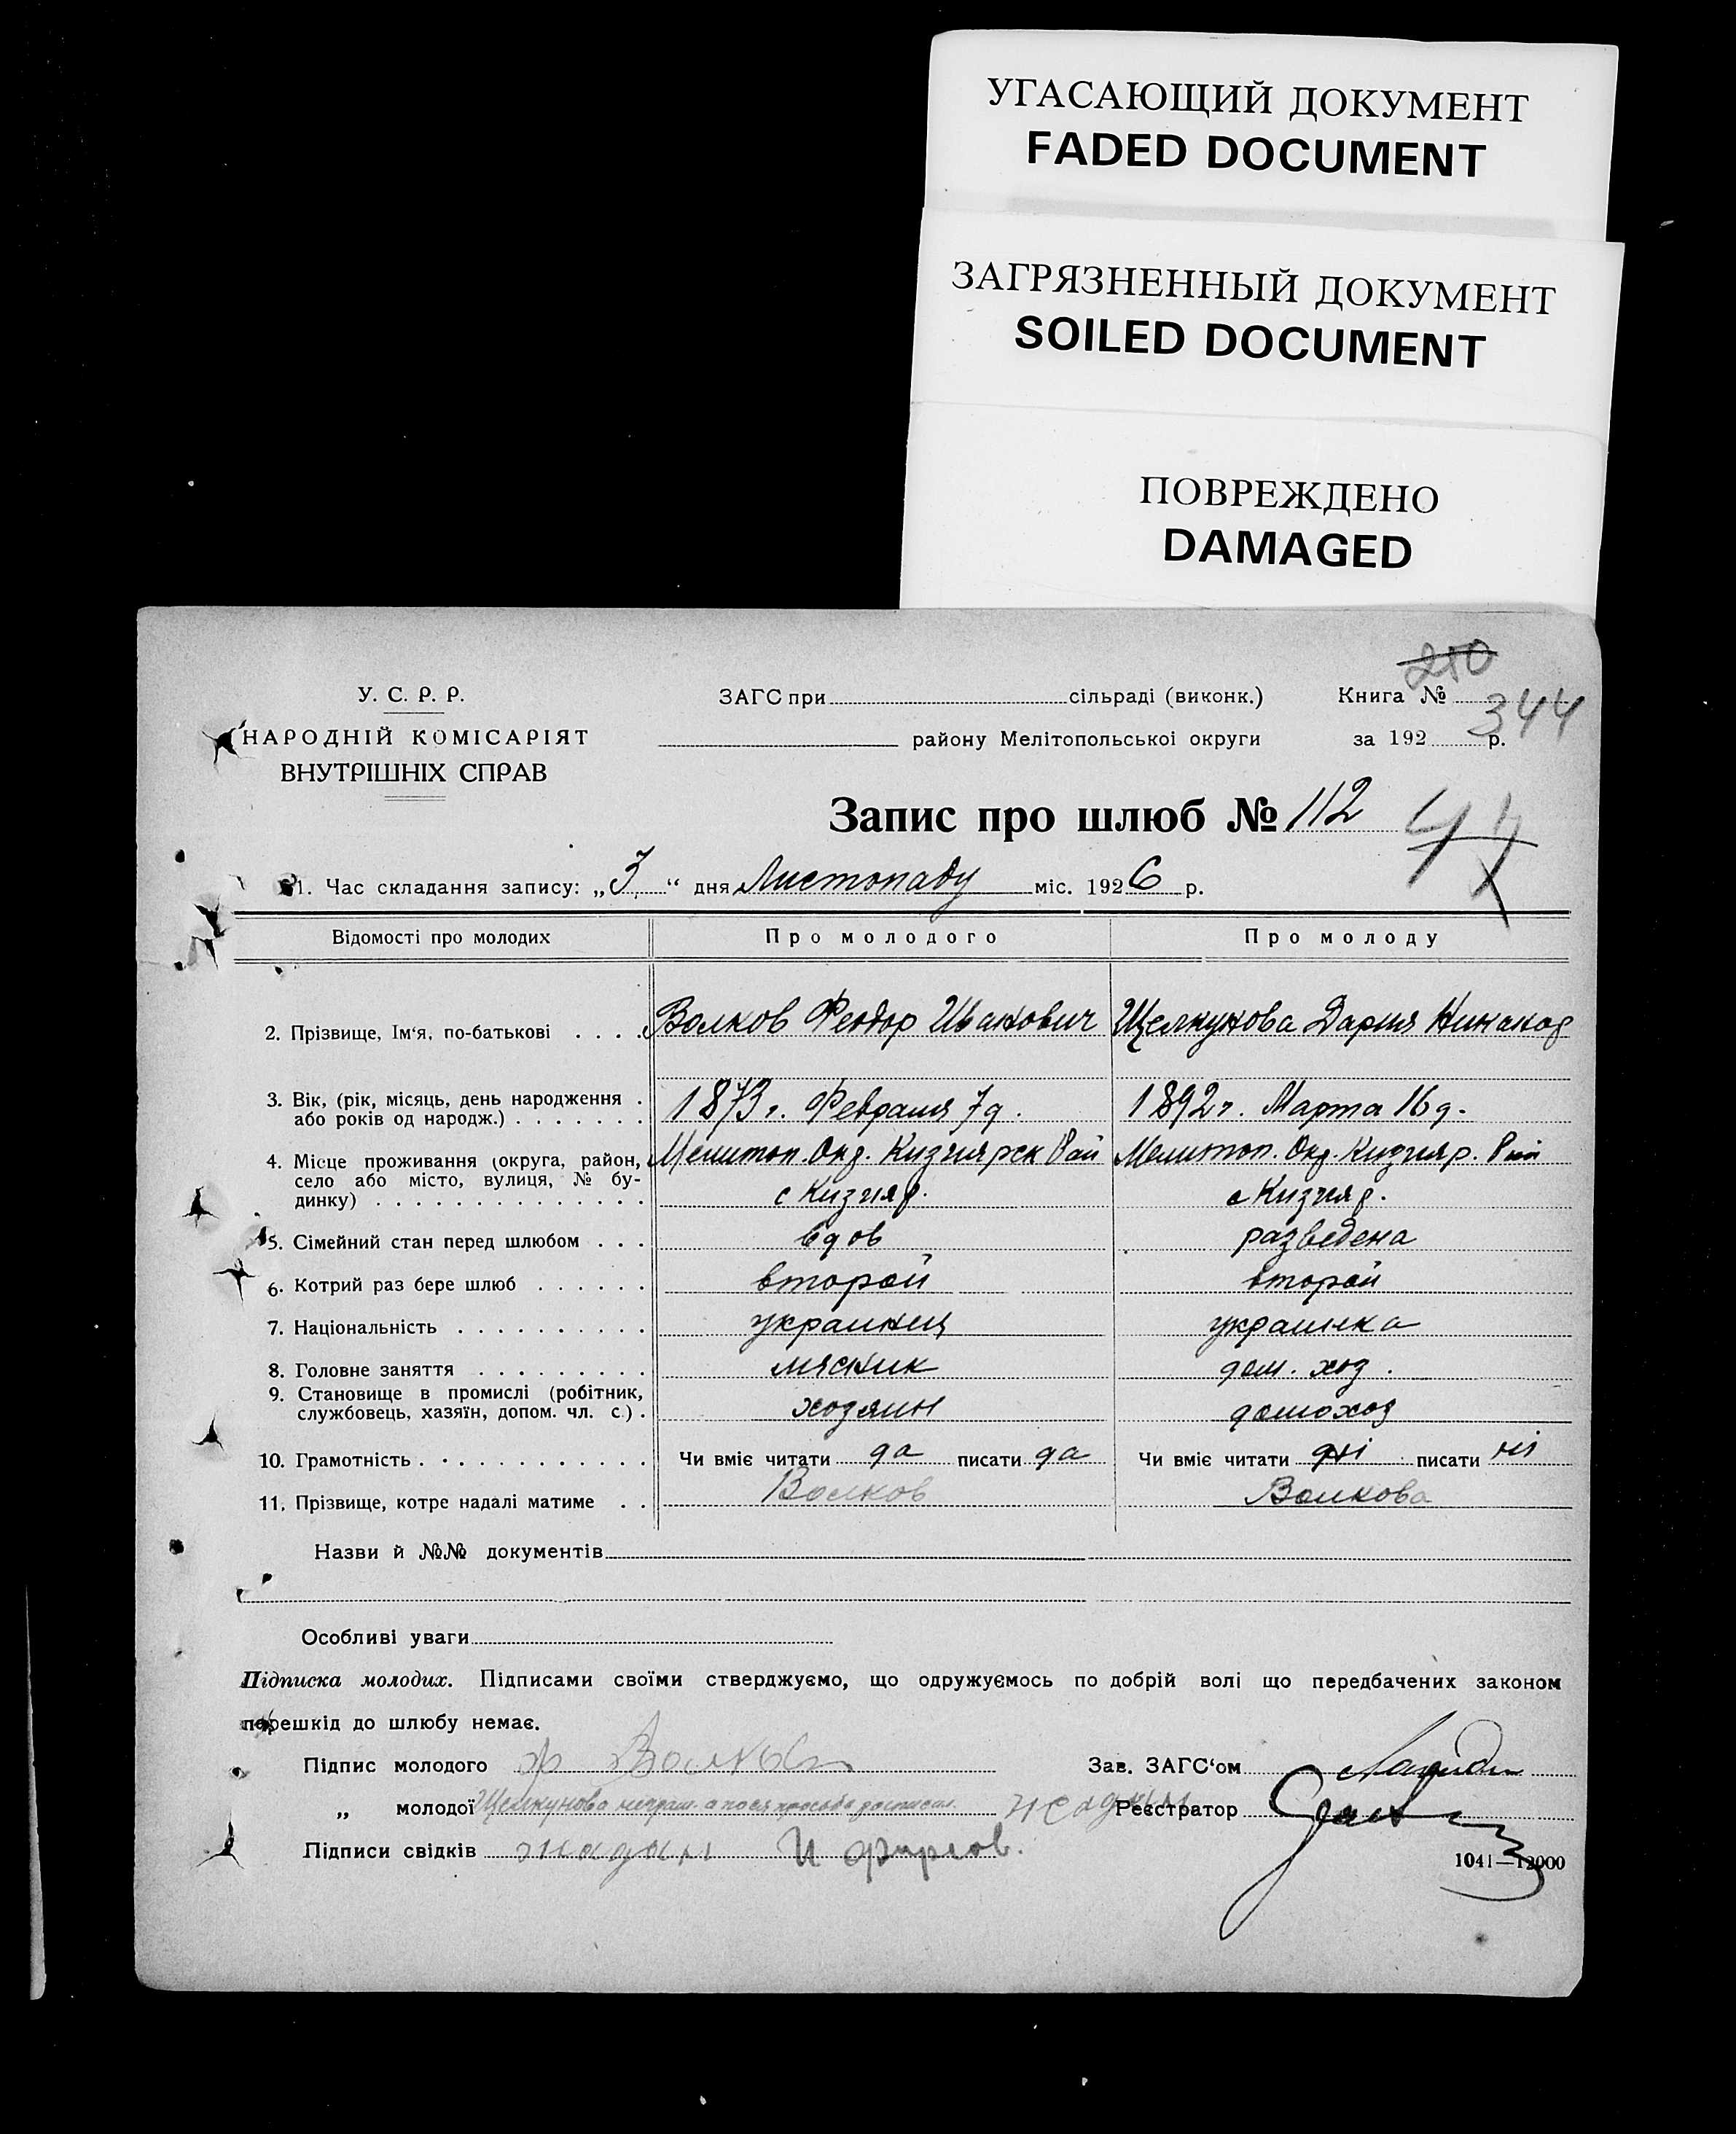 УГАСАЮЩИЙ ДОКУМЕНТ
FADED DOCUMENT
ЗАГРЯЗНЕННЫЙ ДОКУМЕНТ
SOILED DOCUMENT
ПОВРЕЖДЕНО
DAMAGED
250
У. С. Р. Р.
ЗАГС при сільраді (виконк.)
Книга № 344
НАРОДНІЙ КОМІСАРІЯТ
району Мелітопольської округи
за 192 р.
ВНУТРІШНІХ СПРАВ
Запис про шлюб № 112
1. Час складання запису: „3“ дня Листопаду міс. 1926 р.
Відомості про молодих Про молодого Про молоду
2. Прізвище, Ім'я, по-батькові . . . . Волков Феодор Иванович Щелкунова Дария Никанор
3. Вік, (рік, місяць, день народження .
або років од народж.) . . . . . . . 1873 г. Февраля 7 д. 1892 г. Марта 16 д.
4. Місце проживання (округа, район, Мелитоп. Окр. Кизиярск Рай Мелитоп. Окр. Кизияр. Рай
село або місто, вулиця, № бу-
динку) . . . . . . . . . . . . . с Кизияр. с Кизияр.
5. Сімейний стан перед шлюбом . . . вдов разведена
6. Котрий раз бере шлюб . . . . . . второй второй
7. Національність . . . . . . . . . . украинец украинка
8. Головне заняття . . . . . . . . . мясник дом. хоз.
9. Становище в промислі (робітник,
службовець, хазяїн, допом. чл. с.) . хозяин домохоз
10. Грамотність . . . . . . . . . . . . Чи вміє читати да писати да Чи вміє читати ні писати ні
11. Прізвище, котре надалі матиме . . Волков Волкова
Назви й №№ документів
Особливі уваги
Підписка молодих. Підписами своїми стверджуємо, що одружуємось по добрій волі що передбачених законом
перешкід до шлюбу немає.
Підпис молодого Ф Волков Зав. ЗАГС'ом
„ молодої Щелкунова неграм. а по ея просьбе росписал Реєстратор
Підписи свідків И Фирсов.
1041—12000